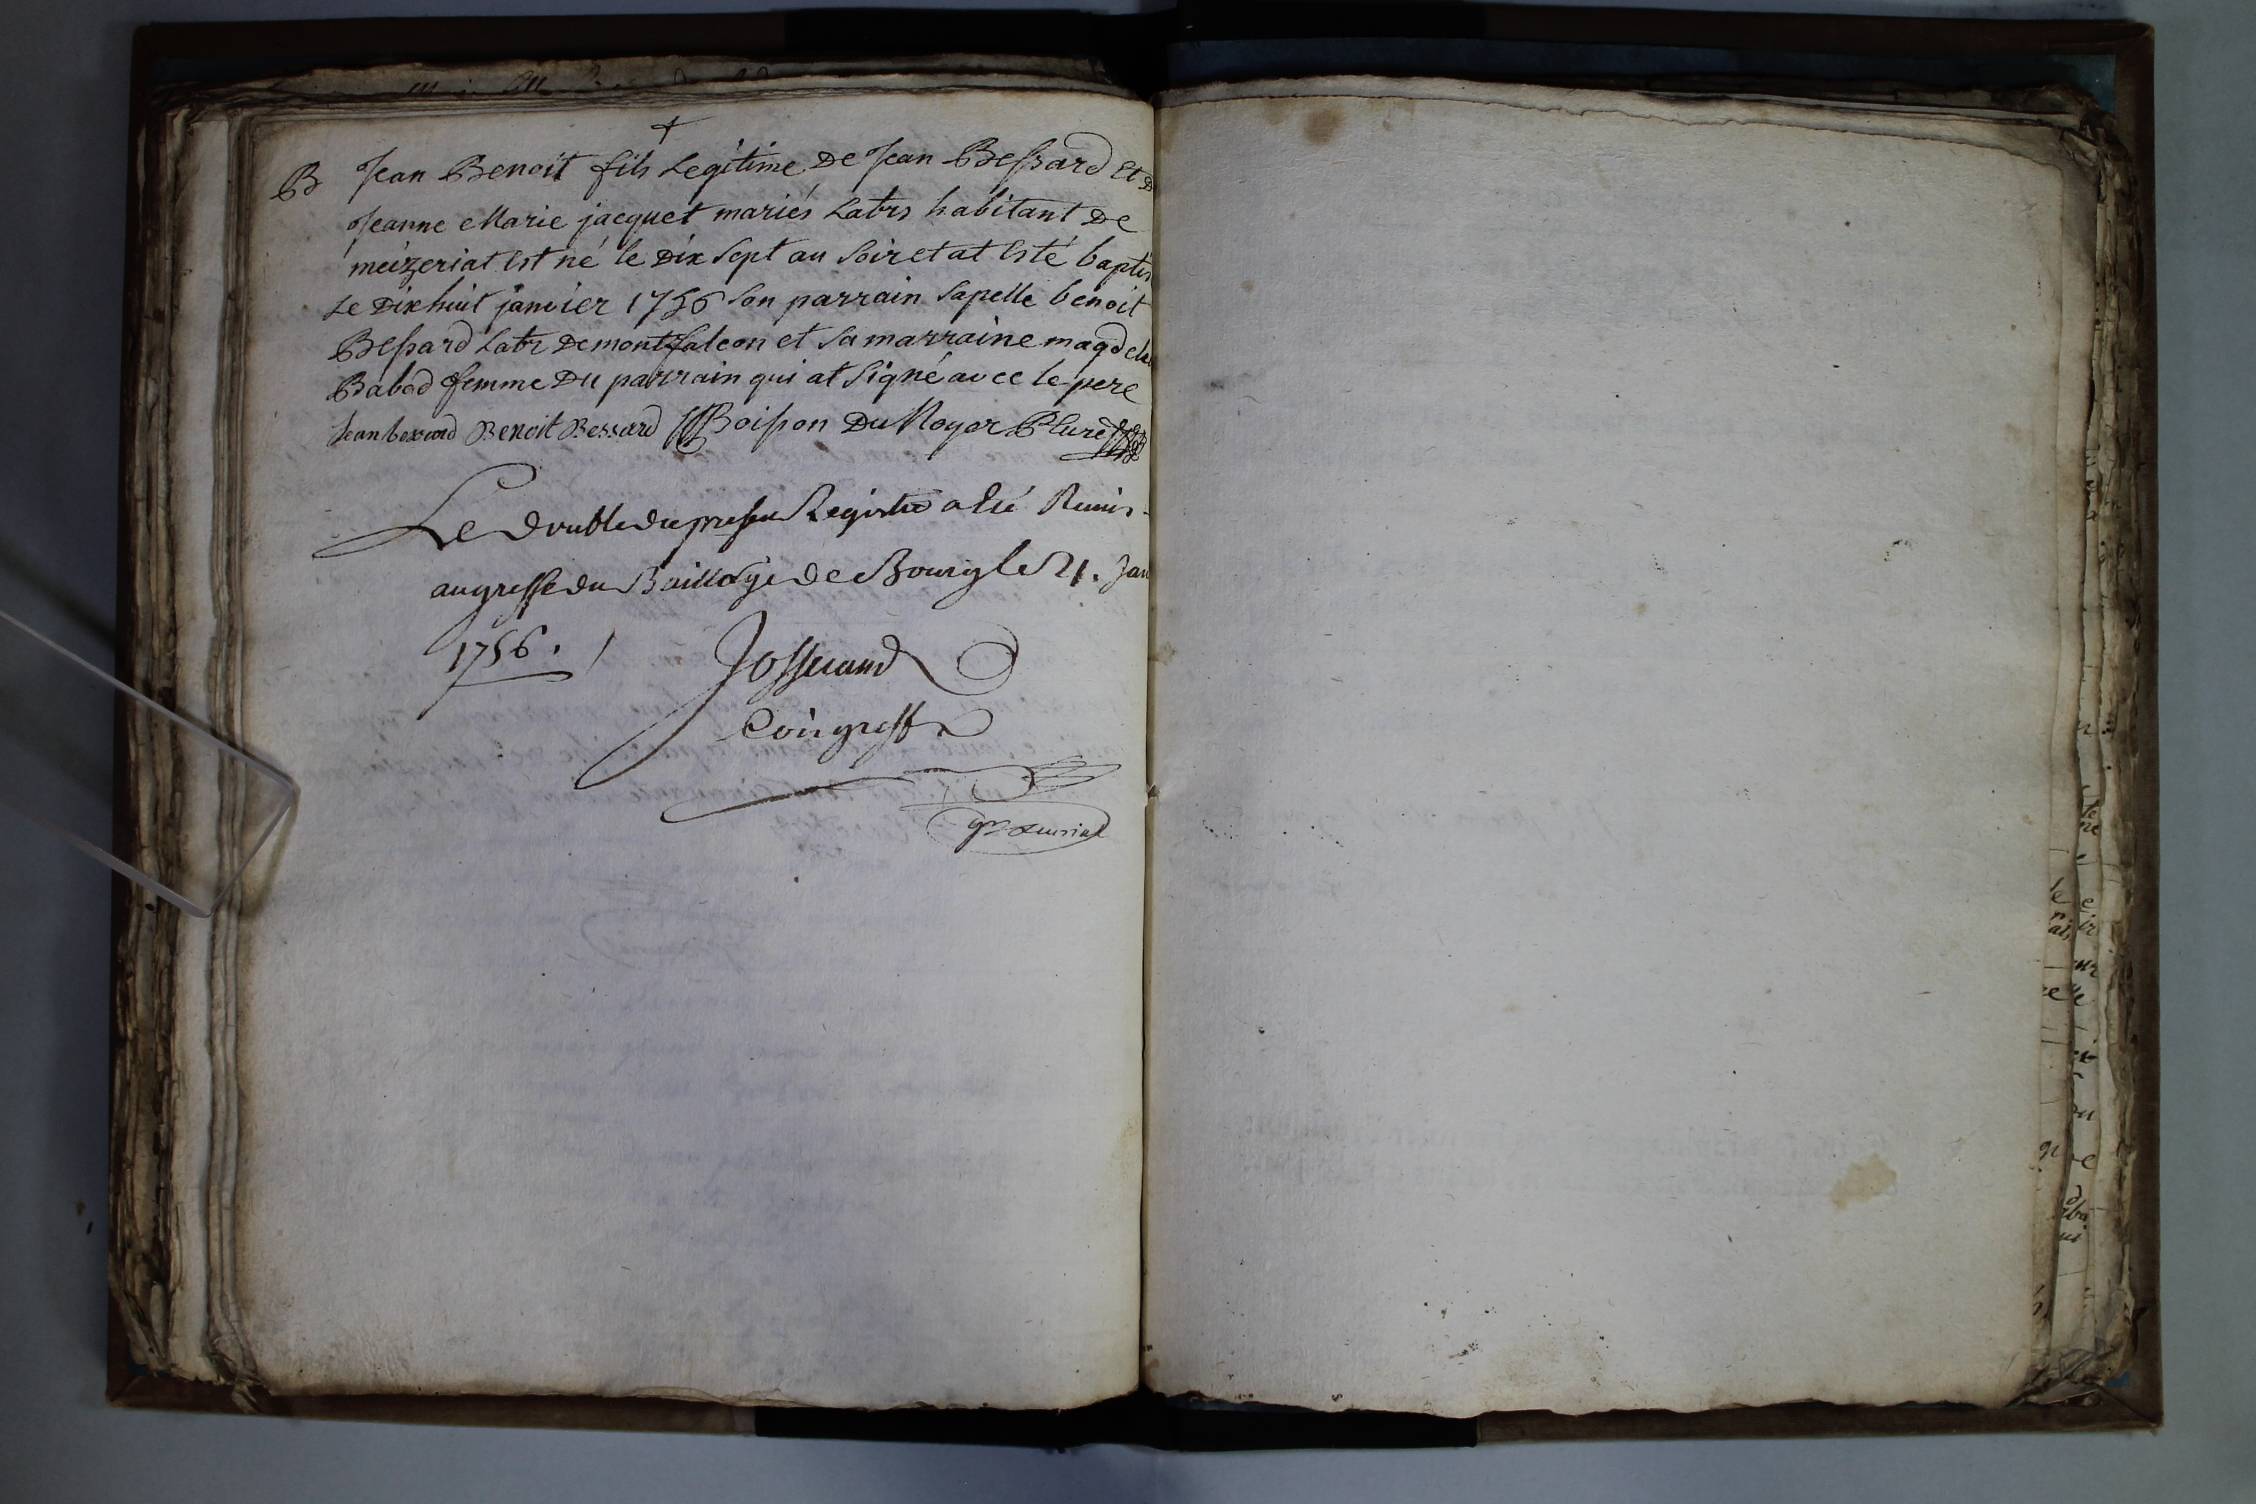 B Jean Benoit fils Legitime De Jean Bessard Et D
Jeanne Marie jacquet mariés Labrs habitant De
meizeriat Est né le Dix Sept au Soir et at Esté baptis
Le Dix huit janvier 1756 Son parrain Sapelle benoit
Bessard Labr De montfalcon et Sa marraine magdel
Babad femme Du parrain qui at Signé avec le pere
Jean bessard Benoit Bessard Boisson Du Noyer Curé
Le double du present Registre a Eté Remis
au greffe du Bailliage de Bourg le 21. Jan
1756.
Josserand
Com greff